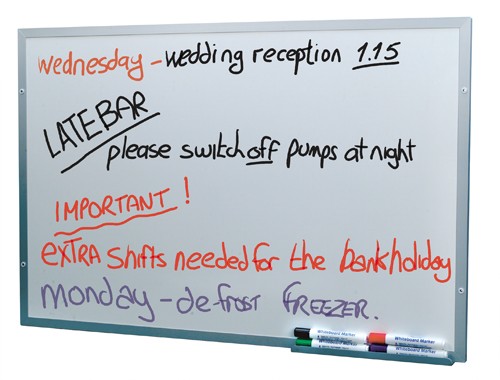 wednesday - wedding reception 1.15
LATE BAR
please switch off pumps at night
IMPORTANT!
EXTRA shifts needed for the bank holiday
monday - defrost FREEZER.
Whiteboard Marker
Whiteboard Marker
Whiteboard Marker
Whiteboard Marker